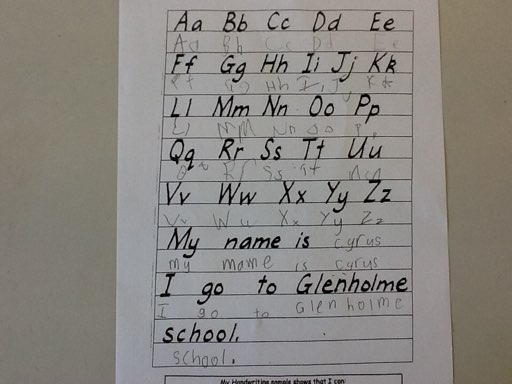 Aa Bb Cc Dd Ee
Aa Bb Cc Dd Ee
Ff Gg Hh Ii Jj Kk
Ff Gg Hh I i J j Kk
Ll Mm Nn Oo Pp
Ll MM Nn Oo P
Qq Rr Ss Tt Uu
Rr Ss Tt
Vv Ww Xx Yy Zz
Vv Ww Xx Yy Zz
My name is cyrus
my mame is cyrus
I go to Glenholme
I go to Glenholme
school.
school.
My Handwriting sample shows that I can: